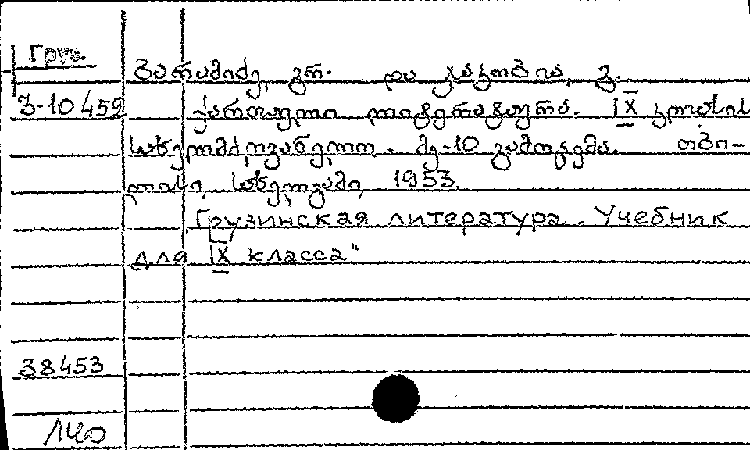 Груз.
ბარამიძე, გრ. და ჯაკობია, გ.
З-10459 ქართული ლიტერატურა. IX კლასის
სახელმძღვანელო. მე-10 გამოცემა. თბი-
ლისი, სახელგამი, 1953.
Грузинская литература. Учебник
для IX класса"
38453
140